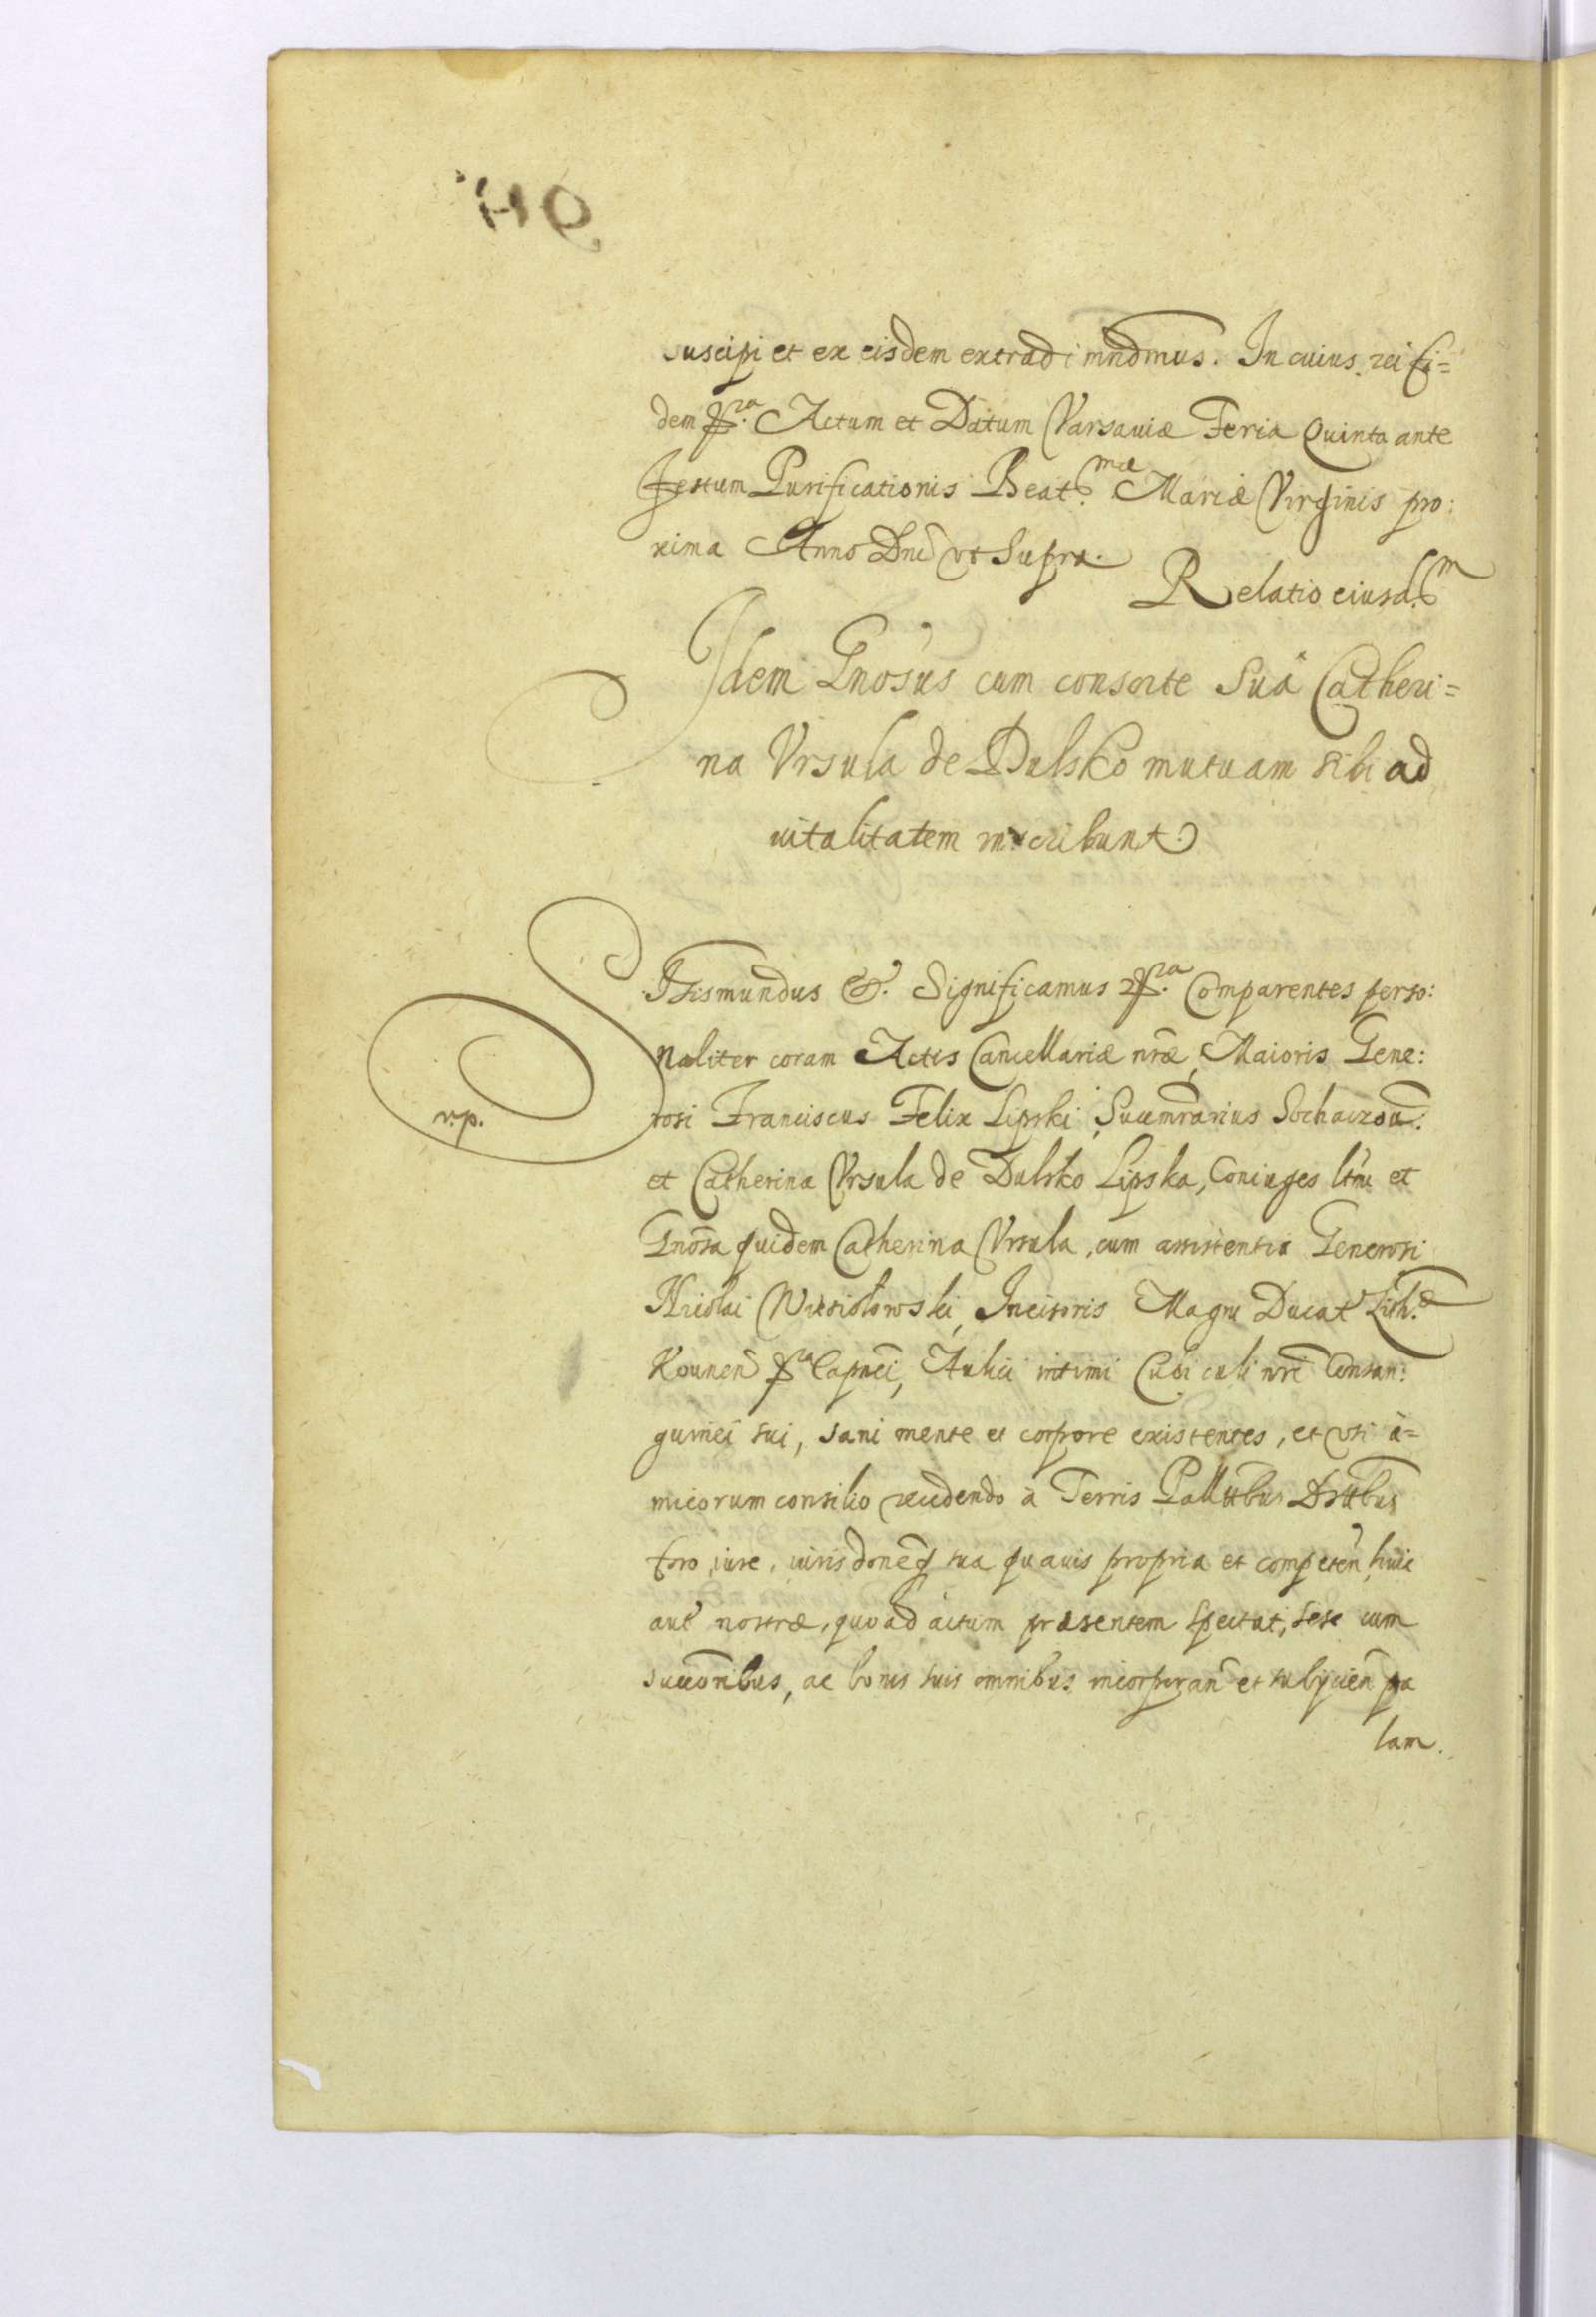 suscipi et ex eisdem extradi mndmus. In cuius rei fi=
dem p.ra Actum et Datum Varsaviæ Feria Quinta ante
Festum Purificationis Beat.mæ Mariæ Virginis pro:
xima Anno Dni vt Supra.
Relatio eiusd.m
Idem Gnosus cum consorte Suâ Catheri=
na Vrsula de Dulsko mutuam sibi ad
uitalitatem inscribunt
Sigismundus &. Significamus p.ra Comparentes perso:
naliter coram Actis Cancellariæ nræ Maioris Gene:
rosi Franciscus Felix Lipski, Succmrarius Sochaczou.
r.p.
et Catherina Vrsula de Dulsko Lipska, Coniuges ltmi et
Gnosa quidem Catherina Vrsula, cum assistentia Generosi
Nicolai Wiesiolowski, Incisoris Magni Ducat Lith.
Kounen p.ra Capnei, Aulici intimi Cubiculi nri Consan:
guinei sui, sani mente et corpore existentes, et vsi a=
micorum consilio recedendo à Terris Pallttbus Dsttbus
foro, iure, iurisdoneq sua quauis propria et competen huic
aut nostræ, quoad actum præsentem spectat, sese cum
succoribus, ac bonis suis omnibus incorporan et subijcien pa
lam.